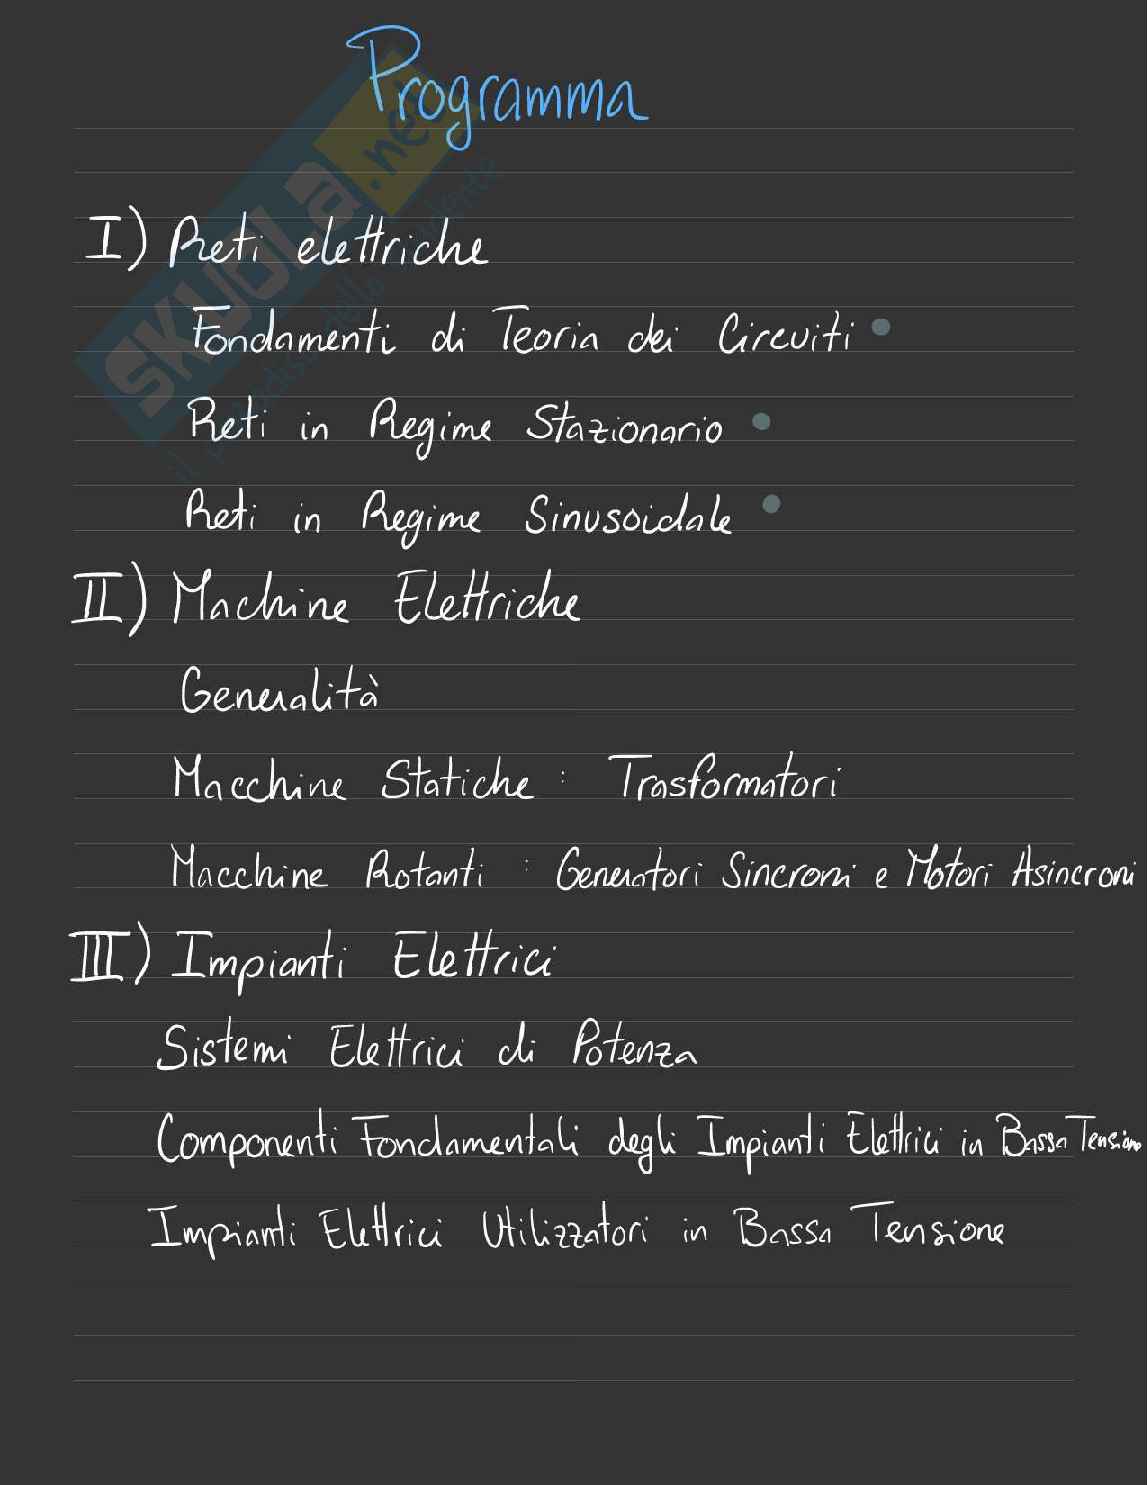 Programma
I) Reti elettriche
Fondamenti di Teoria dei Circuiti
Reti in Regime Stazionario
Reti in Regime Sinusoidale
II) Machine Elettriche
Generalità
Macchine Statiche : Trasformatori
Macchine Rotanti : Generatori Sincroni e Motori Asincroni
III) Impianti Elettrici
Sistemi Elettrici di Potenza
Componenti Fondamentali degli Impianti Elettrici in Bassa Tensione
Impianti Elettrici Utilizzatori in Bassa Tensione
SKUOLa.net